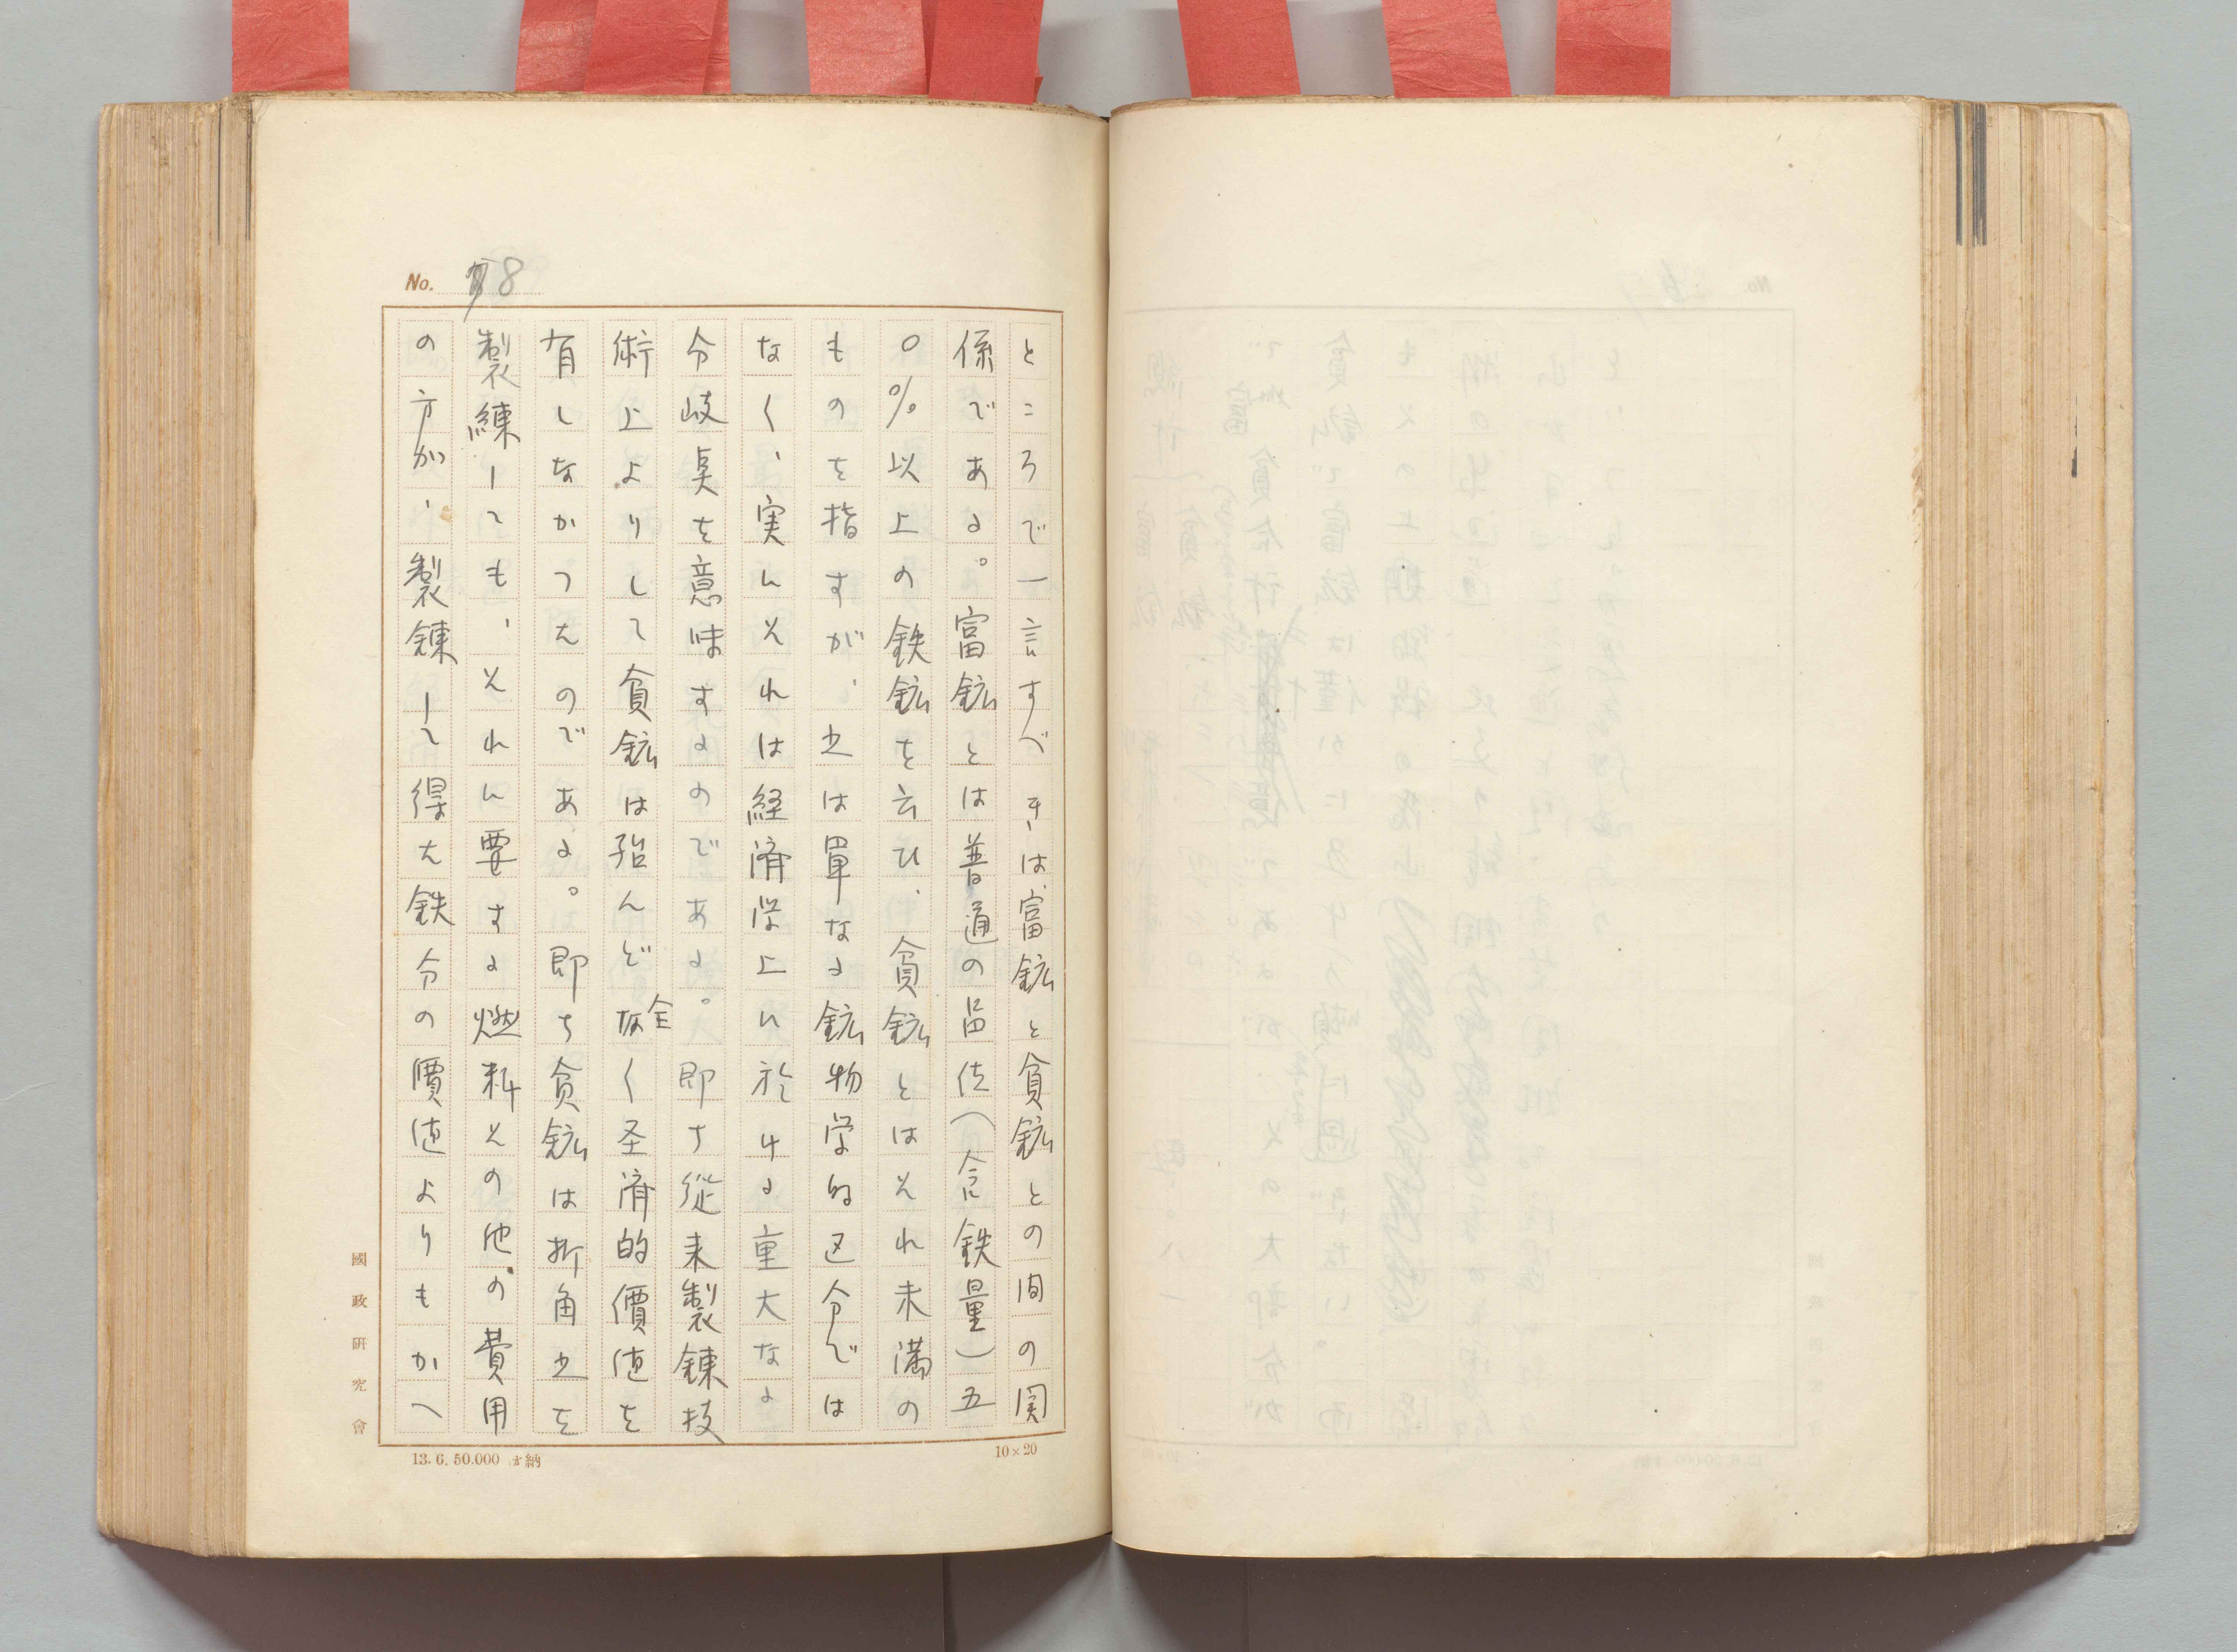 No. 8
ところで一言すべきは、富鉱と貧鉱との間の関
係である。富鉱とは普通の品位(含鉄量)五
〇%以上の鉄鉱を云ひ、貧鉱とはそれ未満の
ものを指すが、之は単なる鉱物学的区分では
なく、実にそれは経済学上に於ける重大なる
分岐点を意味するのである。即ち従来製錬技
術上よりして貧鉱は殆んど全く経済的價値を
有しなかつたのである。即ち貧鉱は折角之を
製錬しても、それに要する燃料その他の費用
の方が、製錬して得た鉄分の價値よりもかへ
國政研究會
13.6.50.000 納
10×20